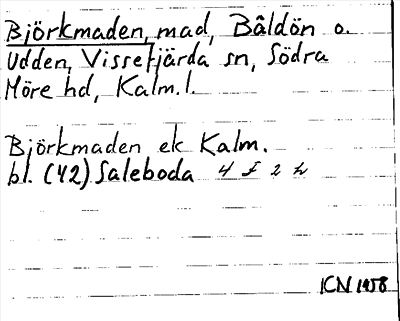 Björkmaden, mad, Båldön o.
Udden, Vissefjärda sn, Södra
Möre hd, Kalm. l.
Björkmaden ek Kalm.
bl. (42) Saleboda 4 f 2 h
ICN 1958